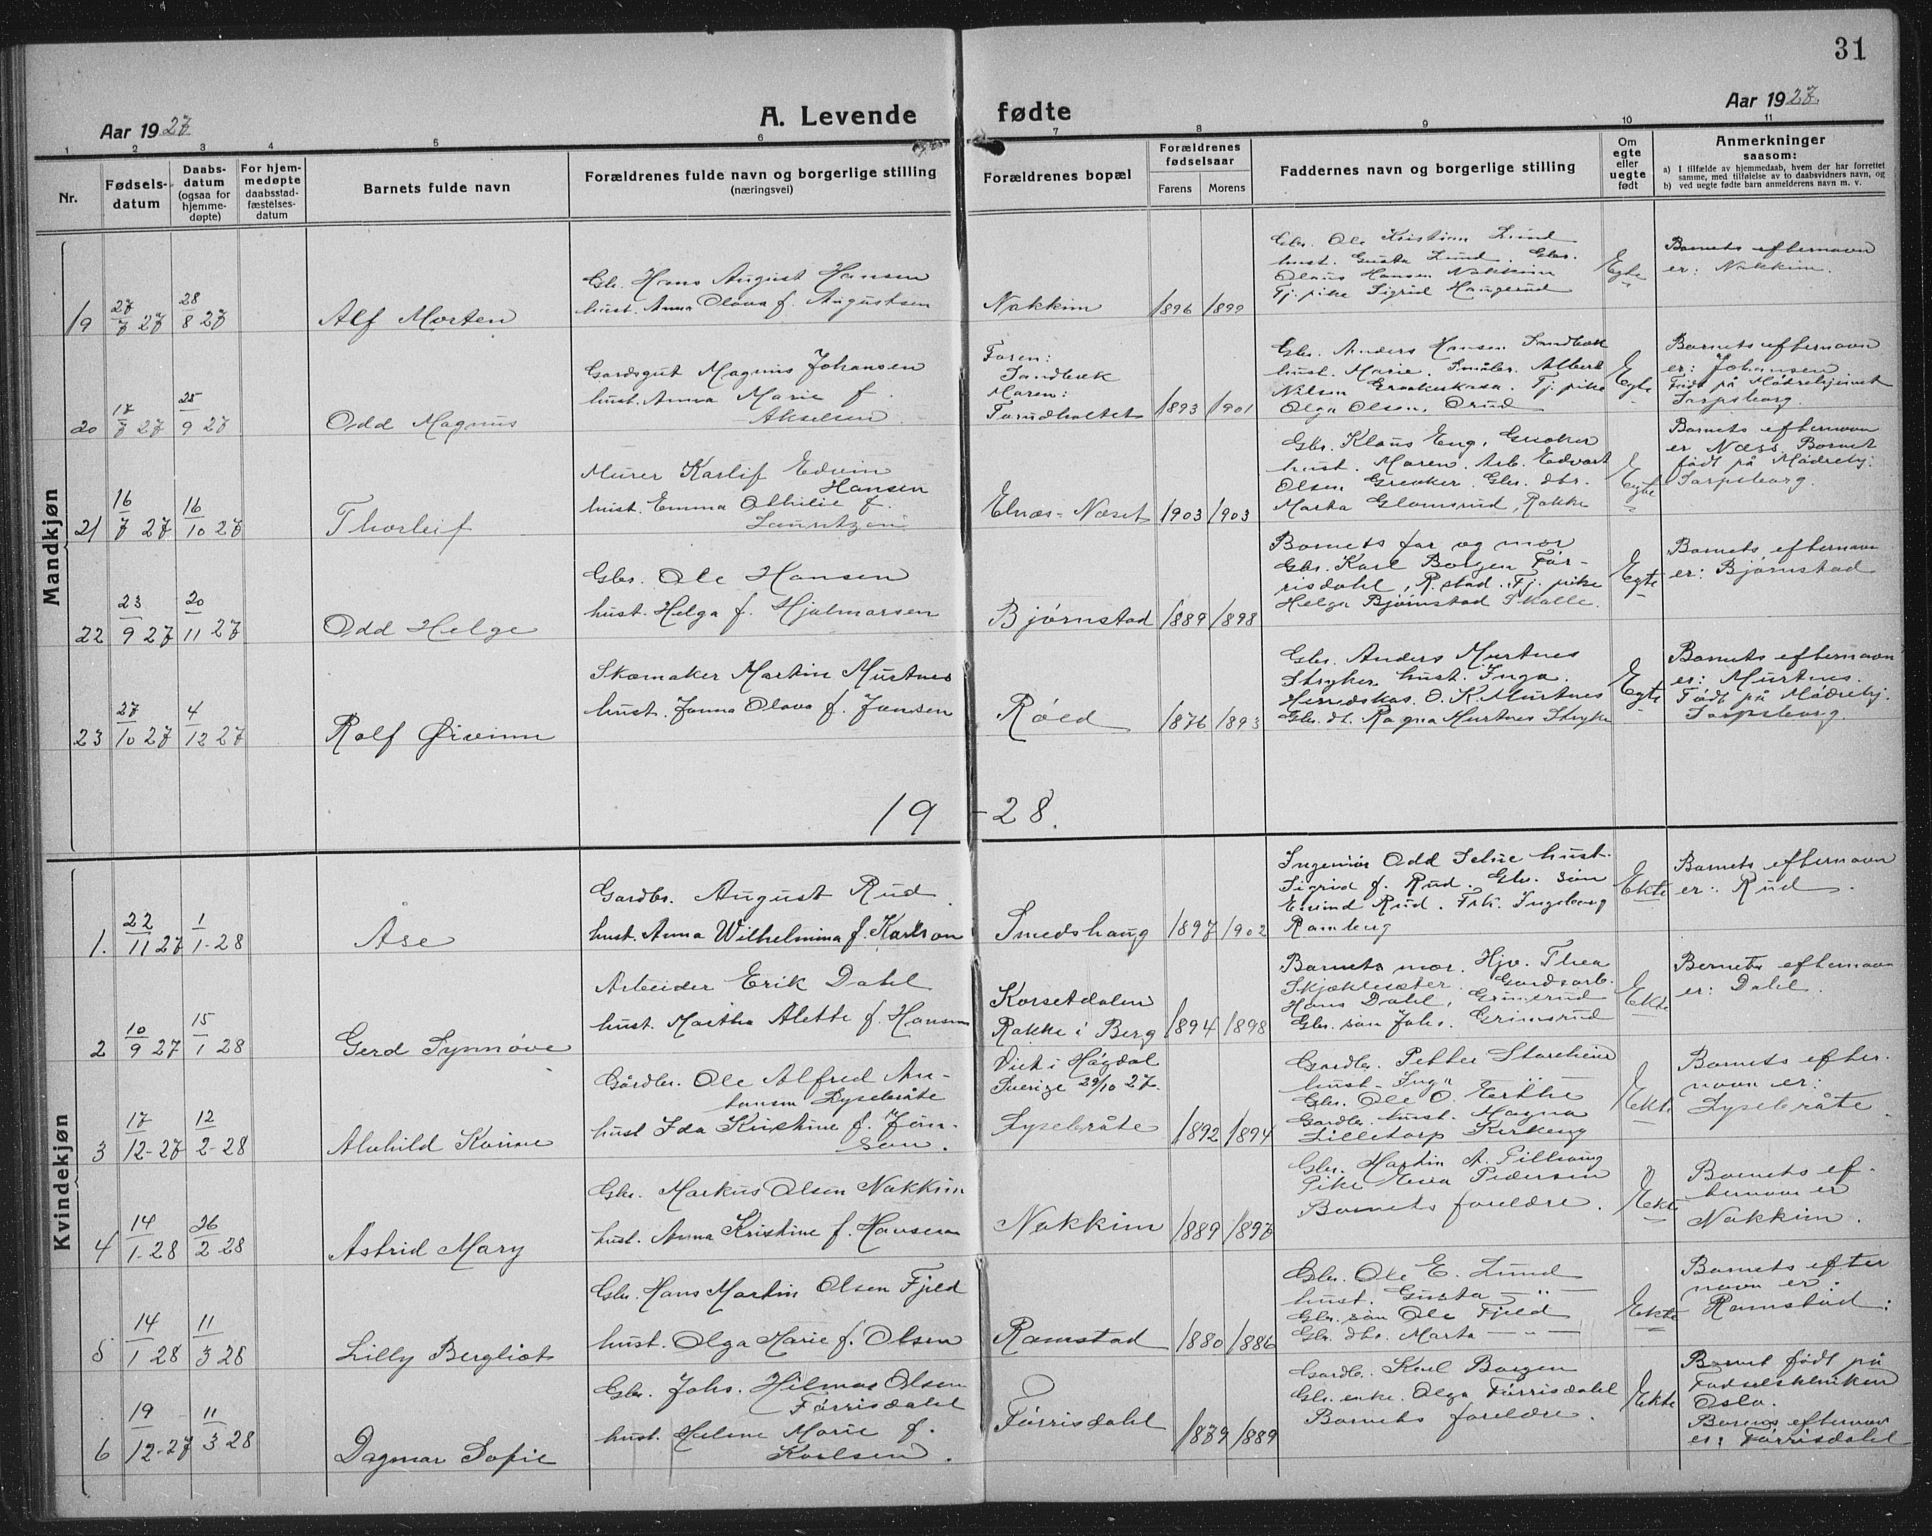 31
Aar 1927
A. Levende fødte
Aar 1927.
1 2 3 4 5 6 7 8 9 10 11
Nr.
Fødsels-
datum
Daabs-
datum
(ogsaa for
hjemme-
døpte)
For hjem-
medøpte
daabsstad-
fæstelses-
datum
Barnets fulde navn
Forældrenes fulde navn og borgerlige stilling
(næringsvei)
Forældrenes bopæl
Forældrenes
fødselsaar
Farens Morens
Faddernes navn og borgerlige stilling
Om
egte
eller
uegte
født
Anmerkninger
saasom:
a) I tilfælde av hjemmedaab, hvem der har forrettet
samme, med tilføielse av to daabsvidners navn, og
b) ved uegte fødte barn anmelderens navn m. v.
Mandkjøn
19
27/7 27
28/8 27
Alf Morten
Gbr. Hans August Hansen
hust. Anna Olava f. Augustsen
Nakkim
1896 1899
Gbr. Ole Kristian Lund
hust. Gusta Lund. Gbr.
Olaus Hansen Nakkim
Tj. pike Sigrid Haugerud
Egte
Barnets efternavn
er: Nakkim.
20
17/7 27
25/9 27
Odd Magnus
Gardsgut Magnus Johansen
hust. Anna Marie f.
Akselsen
Faren:
Sandbæk
Moren:
Tarudholtet
1893 1901
Gbr. Anders Hansen Sandbæk
hust. Marie. Småbr. Albert
Nilsen Tj. pike
Olga Olsen, Orud
Egte
Barnets efternavn
er: Johansen
Født på Mødrehjemmet
Sarpsborg.
21
16/7 27
16/10 27
Thorleif
Murer Karlif Edvin
Hansen
hust. Emma Othilie f.
Lauritzen
Elnæs-Næset
1903 1903
Gbr. Klaus Eng, Greaker
hust. Maren. Arb. Edvart
Olsen Greaker. Gbr. dtr.
Marta Glomsrud, Rakke
Egte
Barnets efternavn
er Næss. Barnet
født på Mødrehj.
Sarpsborg.
22
23/9 27
20/11 27
Odd Helge
Gbr. Ole Hansen
hust. Helga f. Hjalmarsen
Bjørnstad
1889 1898
Barnets far og mor
Gbr. Karl Borgen Før-
risdahl, R.stad. Tj. pike
Helga Bjørnstad Skalle.
Egte
Barnets efternavn
er: Bjørnstad
23
27/10 27
4/12 27
Rolf Øivinn
Skomaker Martin Murtnes
hust. Janna Olava f. Jansen
Røed
1876 1893
Gbr. Anders Murtnes
Stryker hust. Inga.
Herredskas. O. K. Murtnes
Gbr. dt. Ragna Murtnes Stryke
Egte
Barnets efternavn
er: Murtnes.
Født på Mødrehj.
Sarpsborg.
19-28.
Kvindekjøn
1.
22/11 27
1/1-28
Åse
Gardbr. August Rud.
hust. Anna Wilhelmina f. Karlson
Smedshaug
1897 1902
Ingeniør Odd Selue hust.
Sigrid f. Rud. Gbr. søn
Eivind Rud. Frk. Ingeborg
Ramberg
Ekte
Barnets efternavn
er: Rud.
2
10/9 27
15/1 28
Gerd Synnøve
Arbeider Erik Dahl
hust. Martha Alette f. Hansen
Korsetdalen
Rakke i Berg
1894 1898
Barnets mor. Hjv. Thea
Skjæklesæter. Gardsarb.
Hans Dahl, Grimsrud
Gbr. søn Johs. Grimsrud
Ekte
Barnets efternavn
er: Dahl.
3
17/12-27
12/2-28
Alvhild Karine
Gårdbr. Ole Alfred An-
tonsen Lysebråte
hust Ida Kristine f. Jon-
son.
Viet i Högdal
Sverige 29/10 27.
Lysebråte
1892 1894
Gardbr. Petter Storeheier
hust. Inga
Gbr. Ole O. Erthe
Gardbr. hust. Magna
Lilletorp Kirkeng
Ekte
Barnets efter-
navn er:
Lysebråte.
4
14/1-28
26/2-28
Astrid Mary
Gbr. Markus Olsen Nakkim
hust. Anna Kristine f. Hansen
Nakkim
1889 1897
Gbr. Martin A. Tillaug
Pike Ewa Pedersen
Barnets foreldre.
Ekte
Barnets ef-
ternavn er
Nakkim.
5
14/1 28
11/3 28
Lilly Bergliot
Gbr. Hans Martin Olsen Fjeld
hust. Olga Marie f. Olsen
Ramstad
1880 1886
Gbr. Ole E. Lund
hust. Gusta — " —
Gbr. søn Ole Fjeld
Gbr. dtr. Marta — " —
Ekte
Barnets efter
navn er:
Ramstad.
6
19/12-27
11/3 28
Dagmar Sofie
Gbr. Johs. Hilmar Olsen
Førrisdahl
hust. Helene Marie f.
Karlsen.
Førrisdahl
1879 1889
Gardbr. Karl Borgen
Gbr. enke. Olga Førrisdahl
Barnets foreldre.
Ekte
Barnet født på
Fødselsklinken
Oslo.
Barnets efternavn
er: Førrisdahl